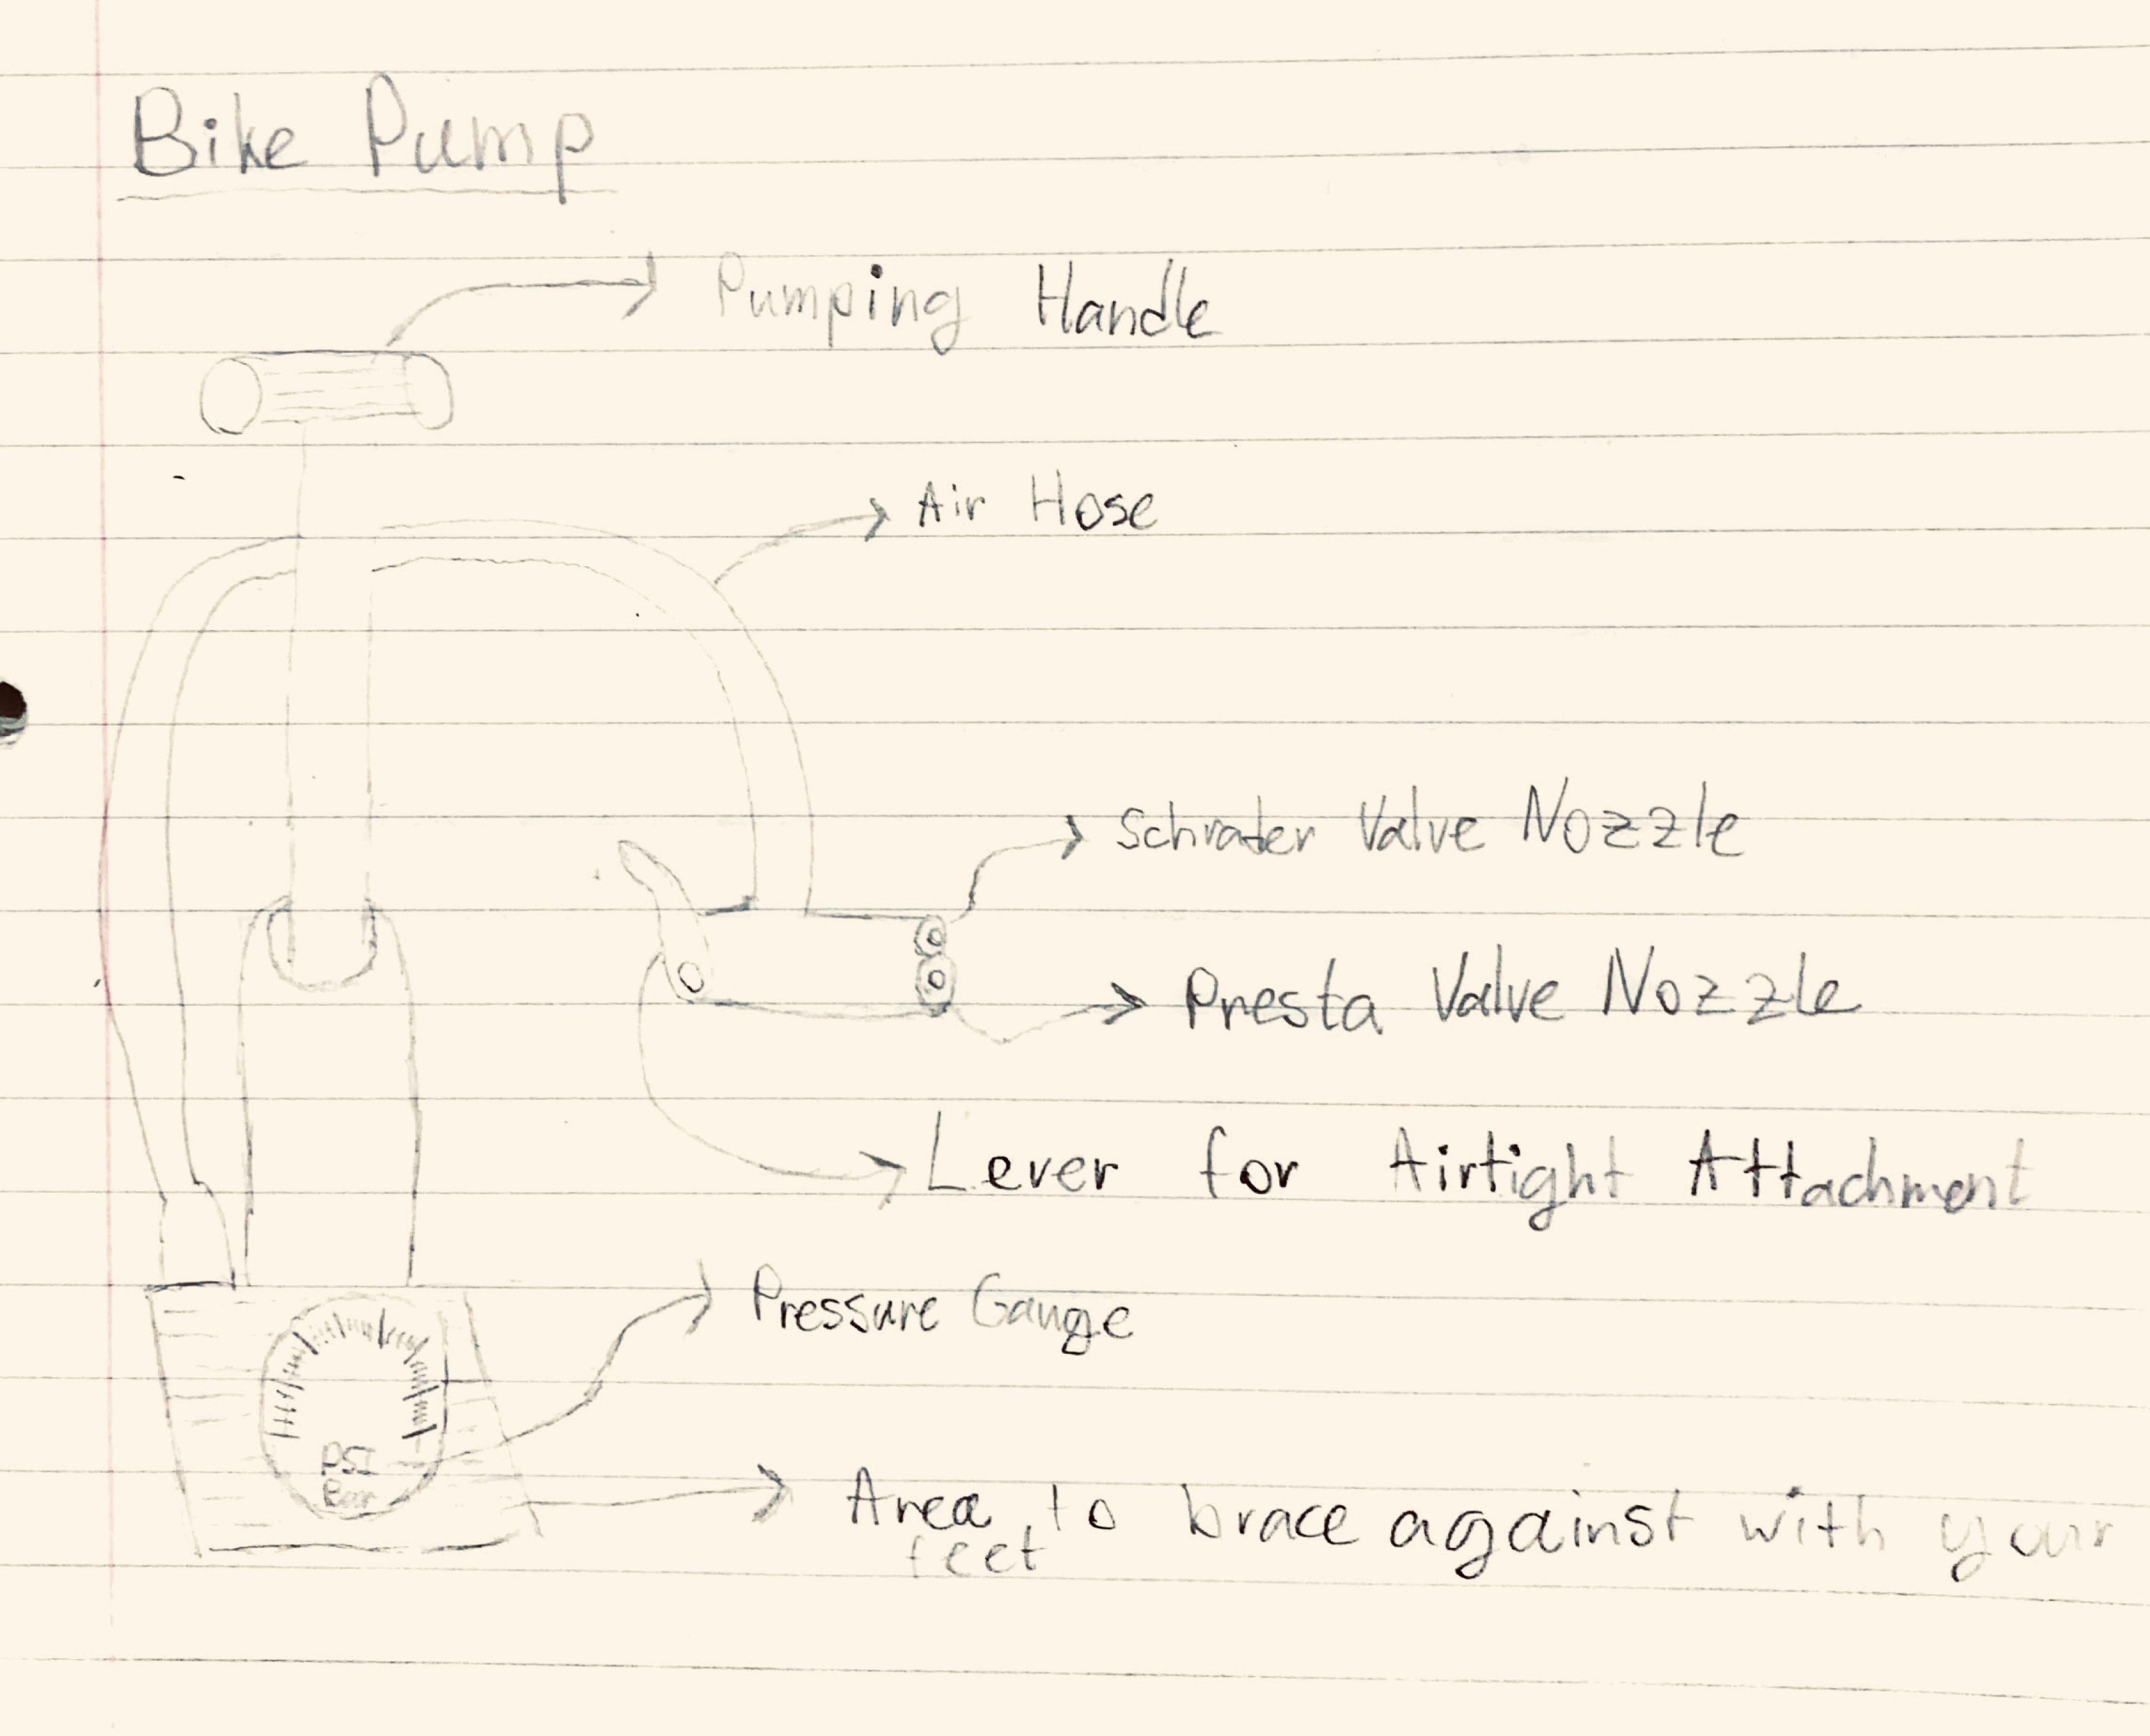 Bike Pump
Pumping Handle
Air Hose
Schrater Valve Nozzle
Presta Valve Nozzle
Lever for Airtight Attachment
Pressure Gauge
PSI
Bar
Area to brace against with your
feet